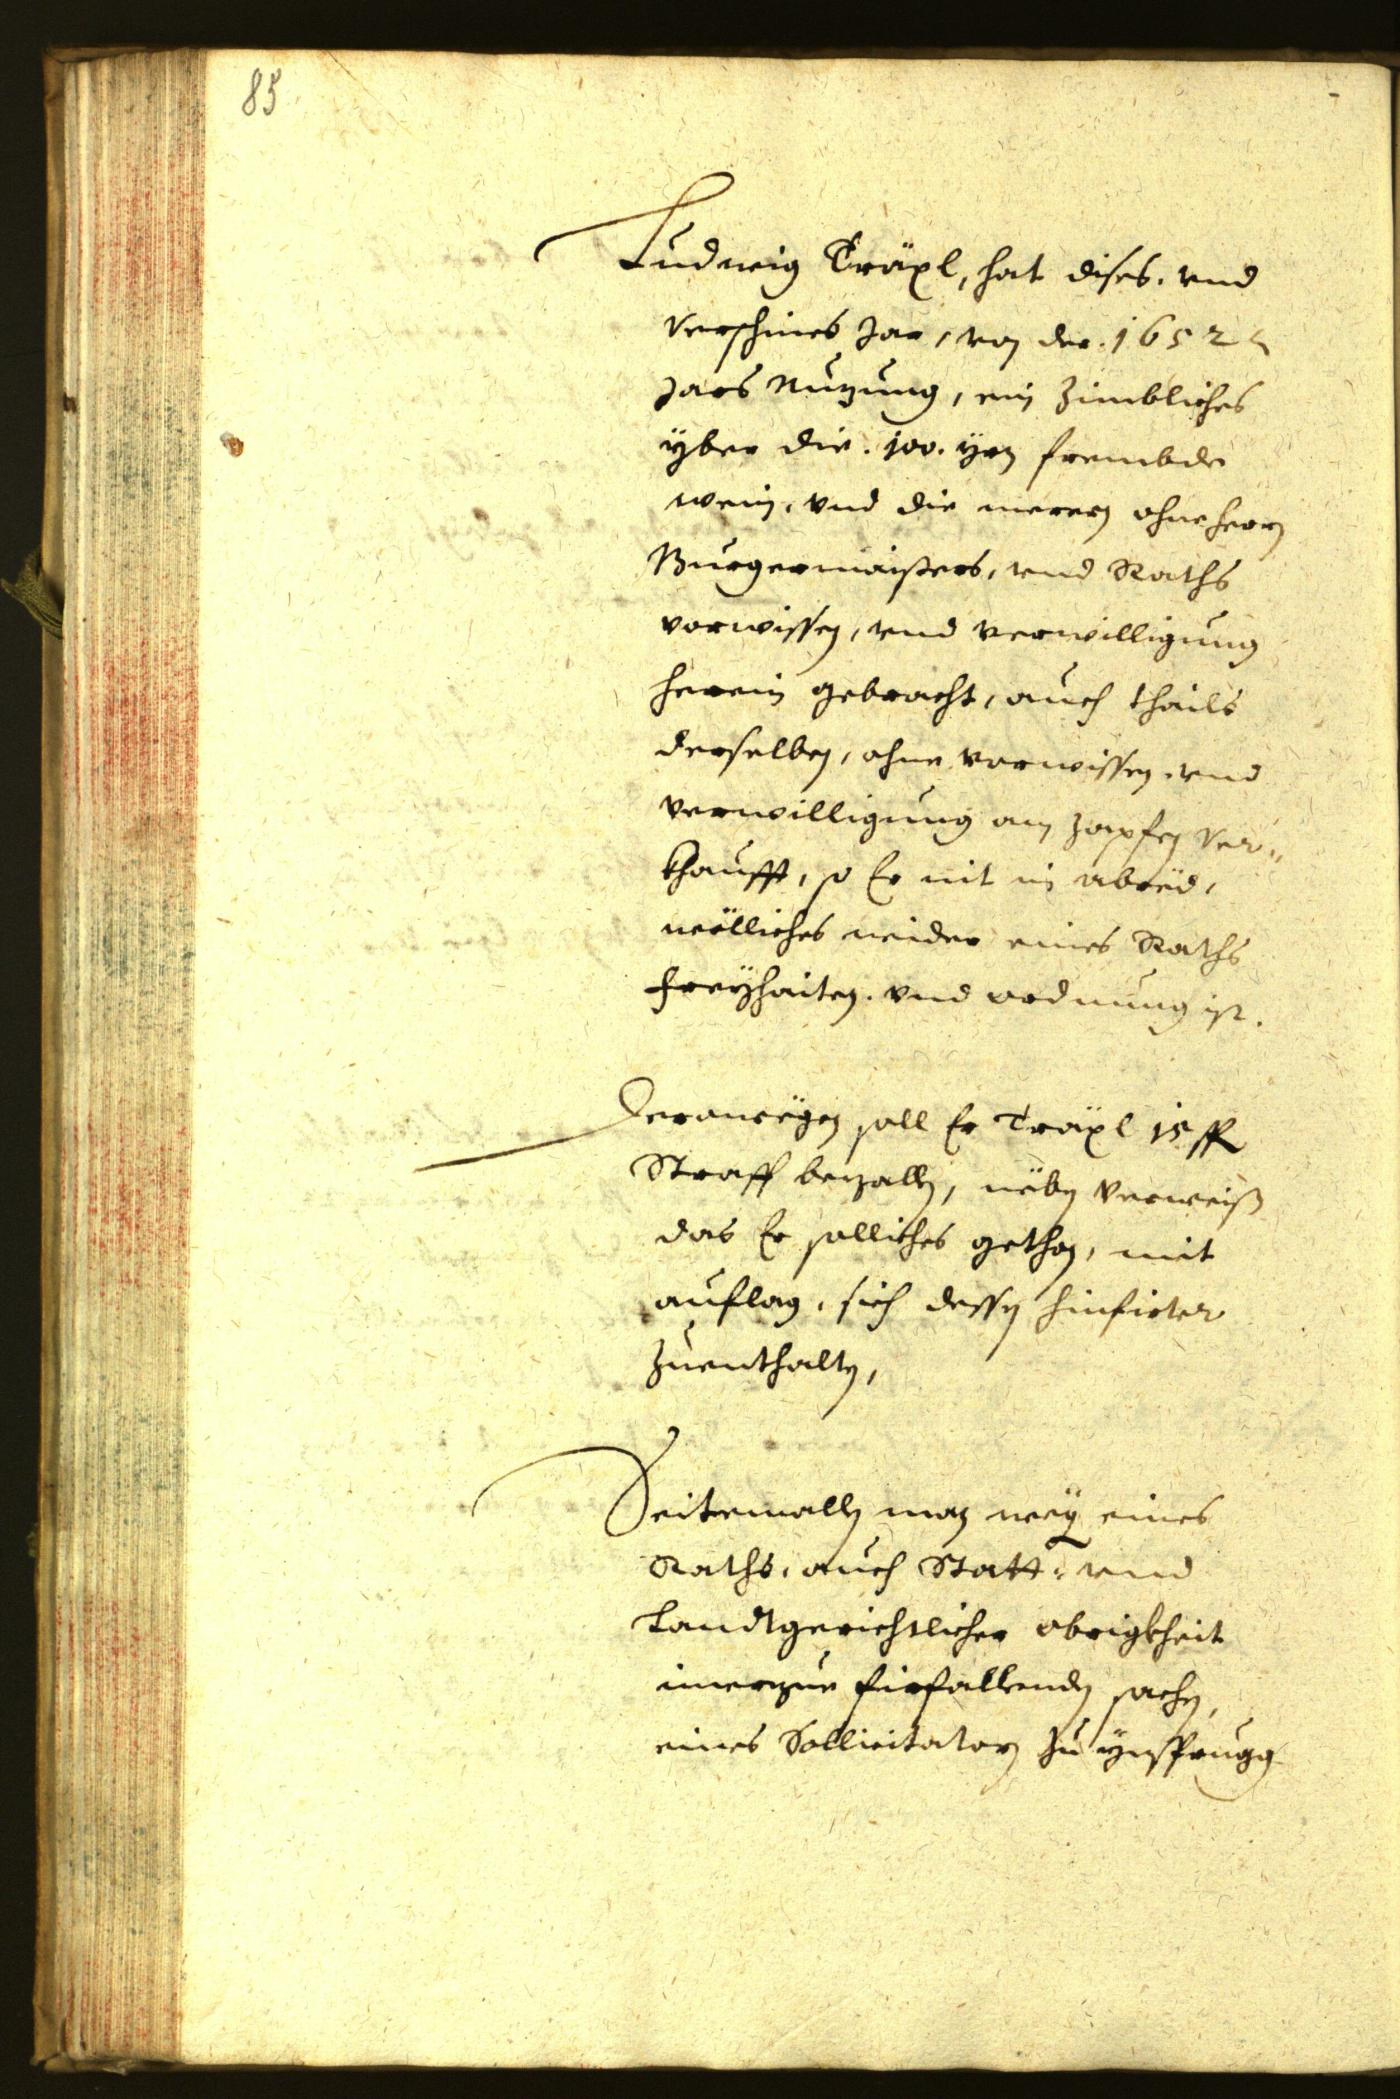 85
Ludwig Träxl, hat dises. vnd
Verschines Jar, von der. 1652
Jars Nutzung, ein Zimbliches
yber die. 100. yrn frembde
wein, vnd die merern ohne herrn
Burgermaisters, vnd Raths
vorwissen, vnd verwilligung
herein gebracht, auch thails
derselben, ohne vorwissen. vnd
verwilligung am Zapfen Ver„
khaufft, so Er nit in abred,
wölliches wider eines Raths
freyhaiten. vnd ordnung ist.
Derowegen soll Er Träxl 15 fl
Straff bezallen, neben Verweiß
das Er solliches gethon, mit
auflag, sich dessen hinfirter
Zuenthalten,
Seitemallen man weg eines
Raths, auch Statt: vnd
Landtgerichtlicher obrigkheit
imerzue fürfallenden sachen,
eines Sollicitatorn Zu ynsprugg